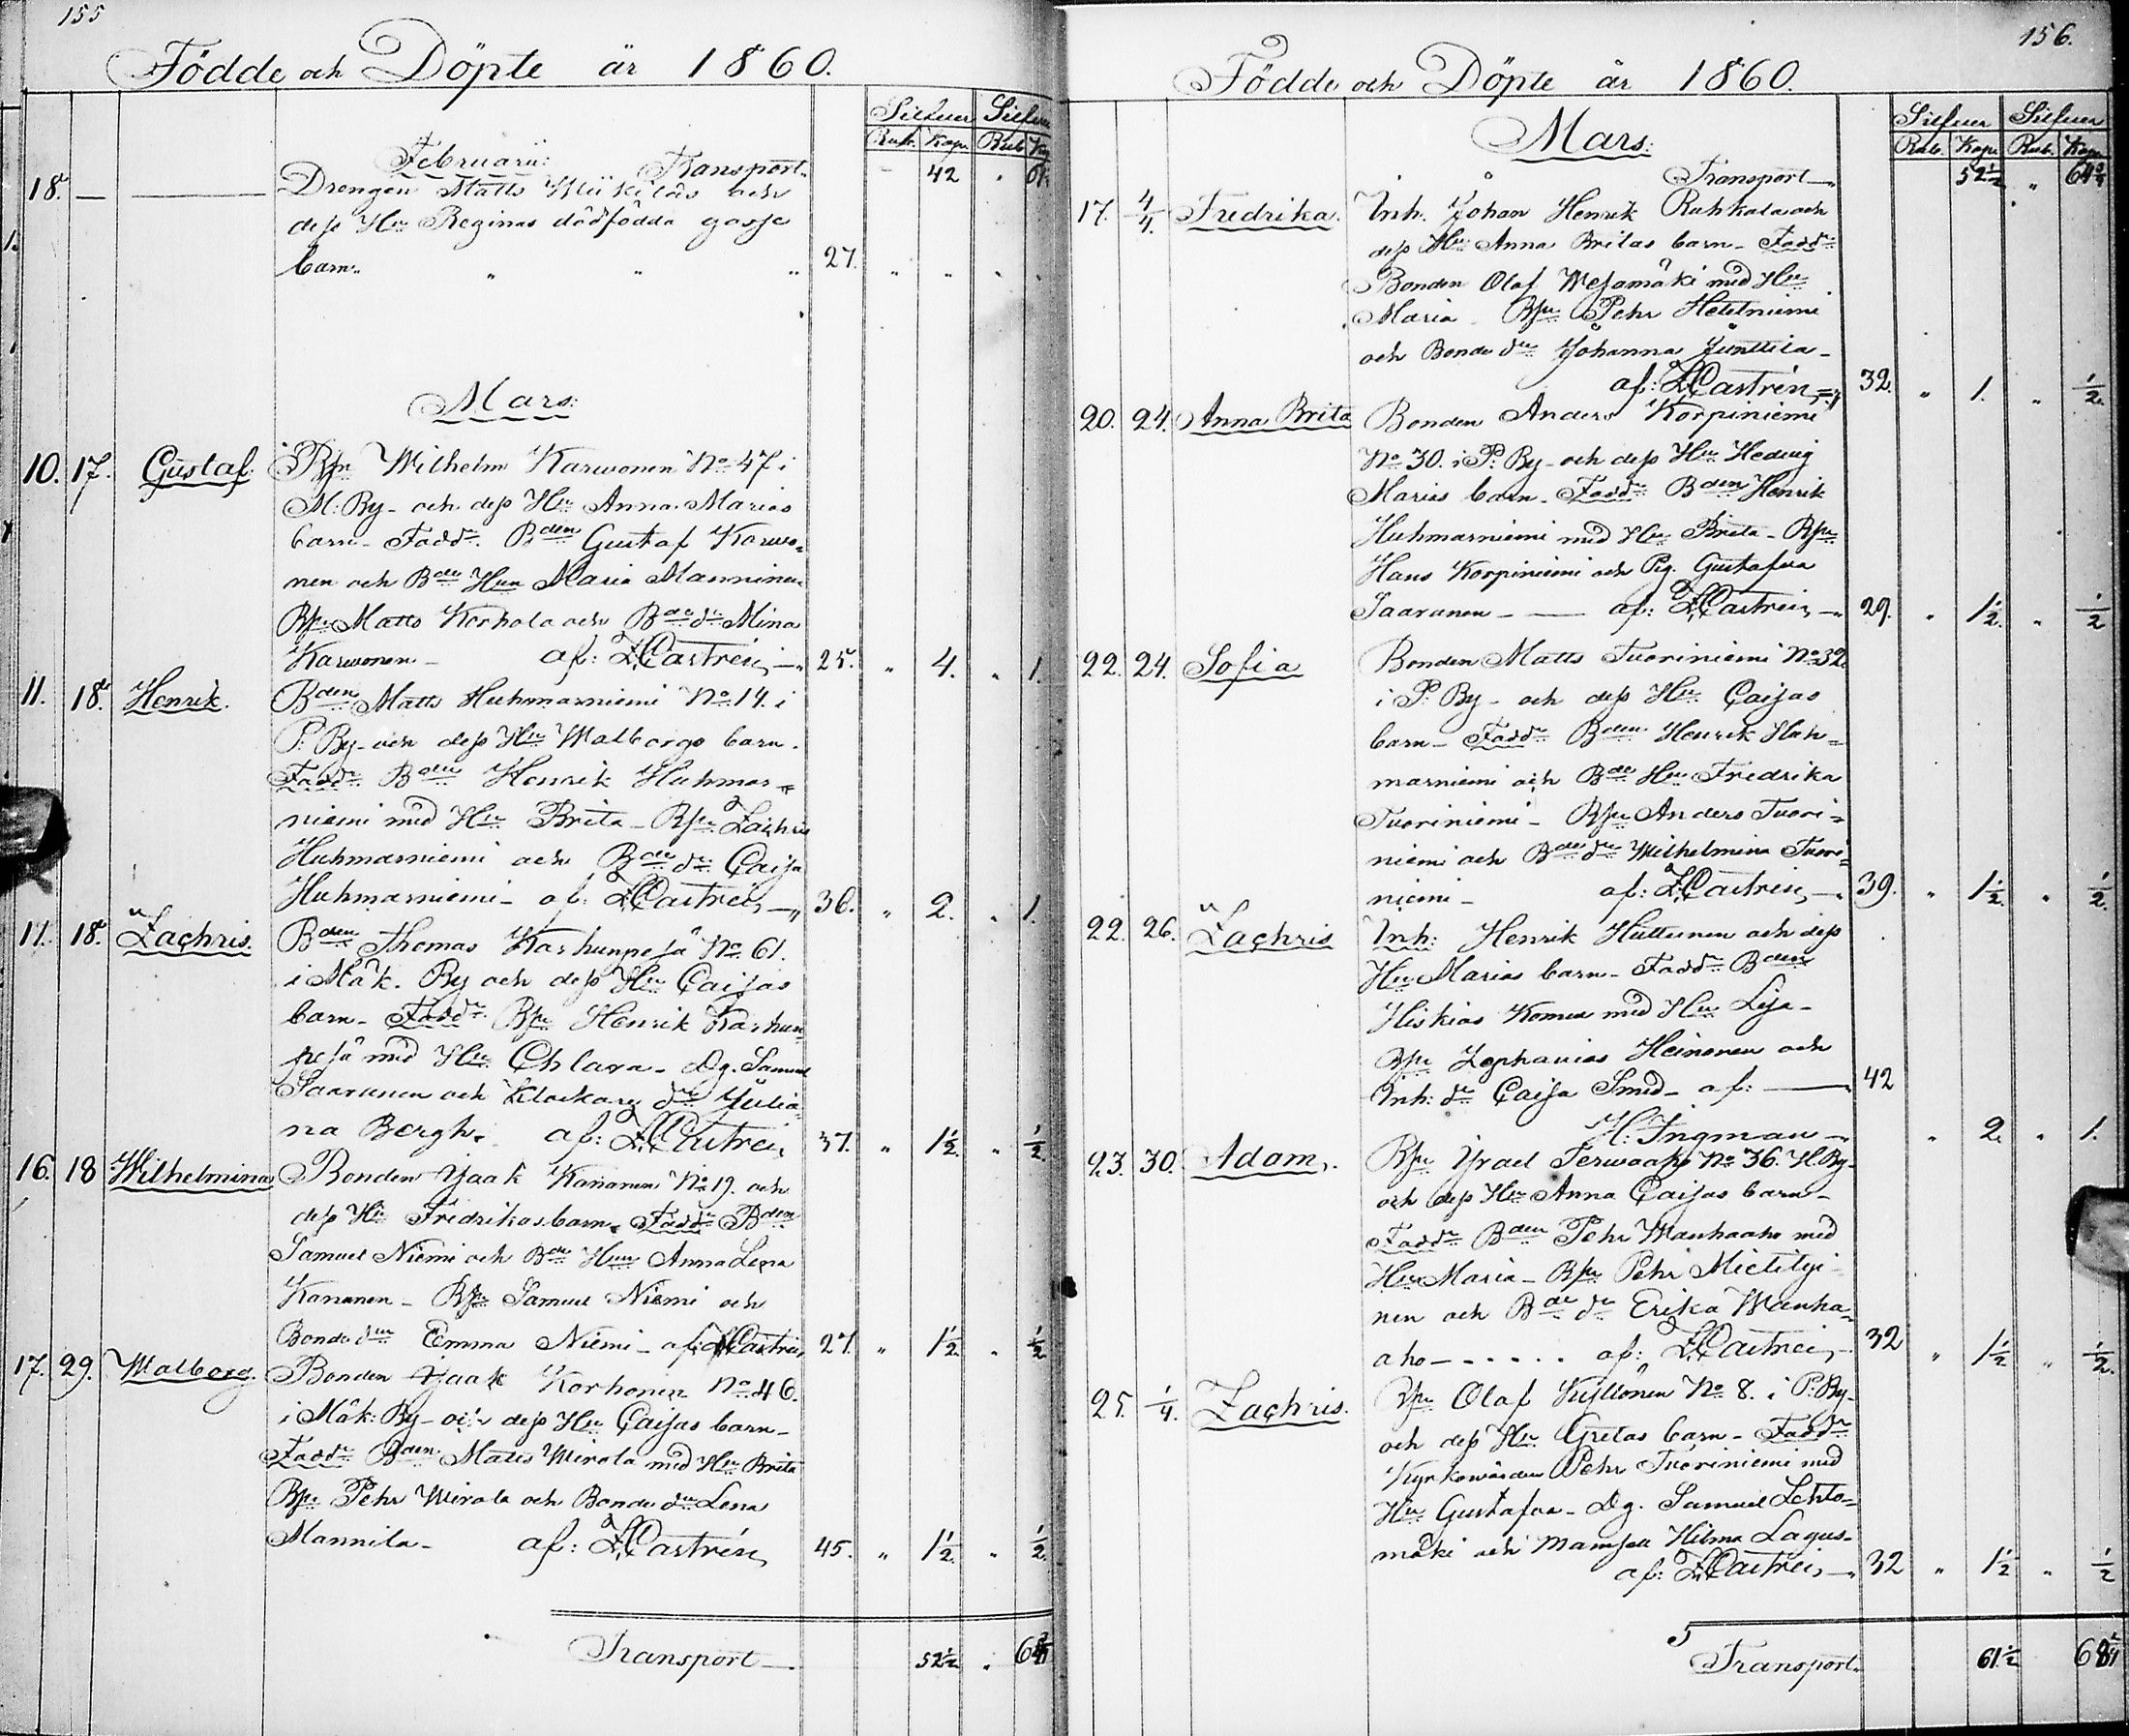 155
Födde och Döpte år 1860.
Silfver Silfver
Rub. Kop. Rub Kop
Februarii: Transport. 42 61
18. — Drengen Matts Mikilas och
dess Hu Reginas dödfödda gosse
barn. 27.
Mars:
10. 17. Gustaf. Bspn Wilhelm Karwonen No 47 i
M: By - och dess Hu Anna Marias
barn - Faddr Bden Gustaf Karwo=
nen och Bde Hun Maria Manninen
Bspn Matts Korhola och Bde dr Mina
Karwonen - af: Z. Castrén, — 25. " 4. " 1.
11. 18. Henrik. Bden Matts Huhmarniemi No 14. i
P: By - och dess Hu Walborgs barn.
Faddr Bden Henrik Huhmar=
niemi med Hu Brita - Bspn Zachris
Huhmarniemi och Bde dr Caisa
Huhmarniemi - af: Z. Castrén, — 36. " 2. " 1.
11. 18. Zachris. Bden Thomas Karhunpesä No 61.
i Mäk. By och dess Hu Caisas
barn - Faddr Bspn Henrik Karhun=
pesä med Hu Chlara - Dg. Samuel
Saaranen och Klockare dr Julia=
na Bergh. af: Z. Castrén, 37. " 1½ " ½.
16. 18 Wilhelmina Bonden Isaak Kananen No 19. och
dess Hu Fredrikas barn. Faddr Bden
Samuel Niemi och Bde Hun Anna Lena
Kananen - Bspn Samuel Niemi och
Bonde dr Emma Niemi - af: Z. Castrén, 27. " 1½ " ½
17. 29. Walborg. Bonden Isaak Korhonen No 46.
i Mäk: By - och dess Hu Caisas barn -
Faddr Bden Matts Wirola med Hu Brita
Bspn Pehr Wirola och Bonde dr Lena
Mannila - af: Z. Castrén, 45. " 1½. " ½.
Transport — 52½ "
156.
Födde och Döpte år 1860.
Silfver Silfver
Rub. Kop. Rub. Kop.
Mars:
Transport — 52½ " 64¾
17. 4/4. Fredrika. Inh. Johan Henrik Ruhkala och
dess Hu Anna Britas barn - Faddr
Bonden Olof Wesamäki med Hu
Maria - Bspn Pehr Heteniemi
och Bonde dr Johanna Junttila -
af: Z. Castrén, 32. " 1. " ½.
20. 24. Anna Brita Bonden Anders Korpiniemi
No 30. i P: By - och dess Hu Hedvig
Marias barn - Faddr Bden Henrik
Huhmarniemi med Hu Brita - Bspn
Hans Korpiniemi och Pig. Gustafva
Saaranen — af: Z. Castrén, — 29. " 1½. " ½
22. 24. Sofia Bonden Matts Tuoriniemi No 32
i P: By - och dess Hu Caijas
barn - Faddr Bden Henrik Huh=
marniemi och Bde Hu Fredrika
Tuoriniemi - Bspn Anders Tuori=
niemi och Bde dr Wilhelmina Tuori=
niemi - af: Z. Castrén, — 39. " 1½. " ½.
22. 26. Zachris Inh: Henrik Huttunen och dess
Hu Marias barn - Faddr Bden
Hiskias Komea med Hu Lisa -
Bspn Zephanias Heinonen och
Inh: dr Caisa Smed - af: — 42
H: Ingman — " 2. " 1.
23. 30. Adam. Bspn Israel Terwaaho No 36. H. By -
och dess Hu Anna Caisas barn -
Faddr Bden Pehr Wanhaaho med
Hu Maria - Bspn Pehr Mietityi=
nen och Bde dr Erika Wanha=
aho - . . . . . af: Z. Castrén, 32 " 1½ " ½.
25. 1/4. Zachris. Bspn Olof Kyllönen No 8. i P: By -
och dess Hu Gretas barn - Faddr
Kyrkowärden Pehr Tuoriniemi med
Hu Gustafva - Dg. Samuel Lehto=
mäki och Mamsell Hilma Lagus -
af: Z. Castrén, — 32 " 1½ " ½
Transport. 61½